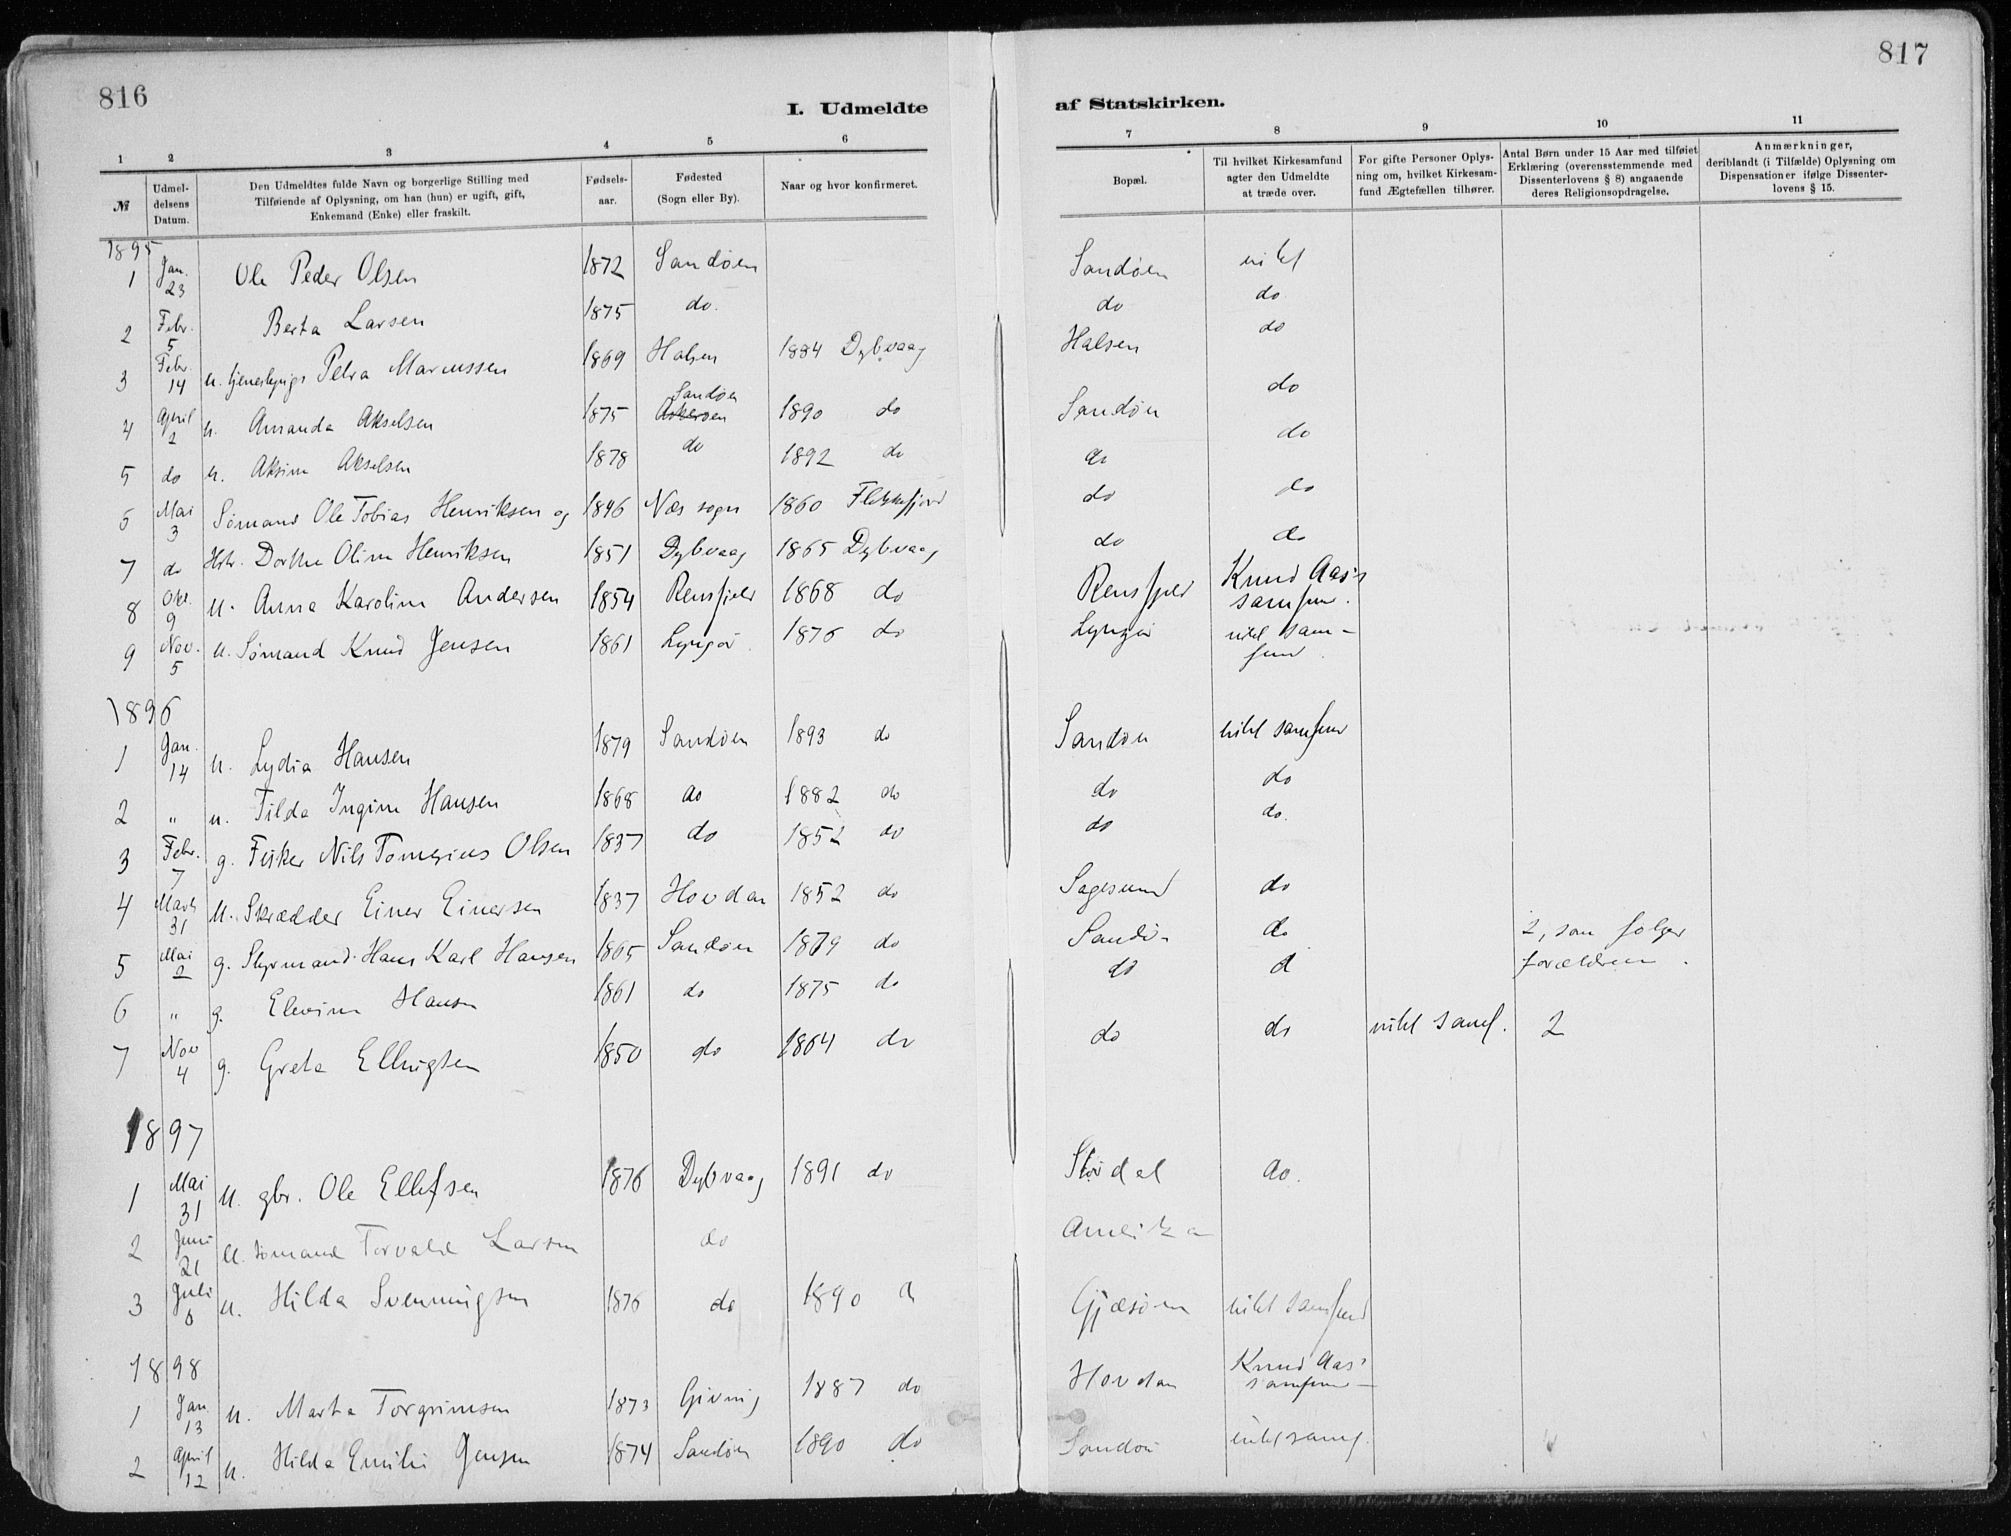 816
817
I. Udmeldte
af Statskirken.
1 2 3 4 5 6
7 8 9 10 11
№ Udmeldelsens Datum. Den Udmeldtes fulde Navn og borgerlige Stilling med Tilføiende af Oplysning, om han (hun) er ugift, gift, Enkemand (Enke) eller fraskilt. Fødselsaar. Fødested (Sogn eller By). Naar og hvor konfirmeret.
Bopæl. Til hvilket Kirkesamfund agter den Udmeldte at træde over. For gifte Personer Oplysning om, hvilket Kirkesamfund Ægtefællen tilhører. Antal Børn under 15 Aar med tilføiet Erklæring (overensstemmende med Dissenterlovens § 8) angaaende deres Religionsopdragelse. Anmærkninger, deriblandt (i Tilfælde) Oplysning om Dispensationer ifølge Dissenterlovens § 15.
1895
1 Jan. 23 Ole Peder Olsen 1872 Sandøen Sandøen
2 Febr. 5 Berta Larsen 1875 do. do do
3 Febr. 14 u. Petra Marcussen 1869 Halsen 1884 Dybvaag Halsen do
4 April 2 u. Amanda Akselsen 1875 Sandøen 1890 do Sandøn do
5 do u. Aksine Akselsen 1878 do 1892 do do do
6 Mai 3 Sømand Ole Tobias Henriksen og 1846 Næs sogn 1860 Flekkefjord do do
7 do Hstr. Dorthe Oline Henriksen 1851 Dybvaag 1865 Dybvaag do do
8 Okt. 9 u. Anna Karoline Andersen 1854 Rensfjeld 1868 do Rensfjeld Knud Aas's samfund.
9 Nov. 5 u. Sømand Knud Jensen 1861 Lyngør 1876 do Lyngør samfund.
1896
1 Jan. 14 u. Lydia Hansen 1879 Sandøen 1893 do Sandøn samfund
2 " u. Tilda Ingine Hansen 1868 do 1882 do do do
3 Febr. 7 g. Fisker Nils Tomesius Olsen 1837 do 1852 do do do.
4 Marts 31 u. Skrædder Einer Einersen 1837 Hovdan 1852 do Sagesund do
5 Mai 2 g. Styrmand Hans Karl Hansen 1865 Sandøen 1879 do Sandø do 2, som følger
6 " g. Elevine Hansen 1861 do 1875 do do d forældrene.
7 Nov 4 g. Grete Ellingsen 1850 do 1864 do do do samf. 2
1897
1 Mai 31 u. gbr. Ole Ellefsen 1876 Dybvaag 1891 do Stødal do.
2 Juni 21 u. sømand Torvald Larsen do Amerika
3 Juli 8 u. Hilda Svenningsen 1876 do 1890 d Gjæsøen samfund
1898
1 Jan 13 u. Marta Torgrimsen 1873 Giving 1887 do Hovdan Knud Aas' samfund
2 April 12 u. Hilda Emilie Jensen 1874 Sandøen 1890 do Sandøn samf.